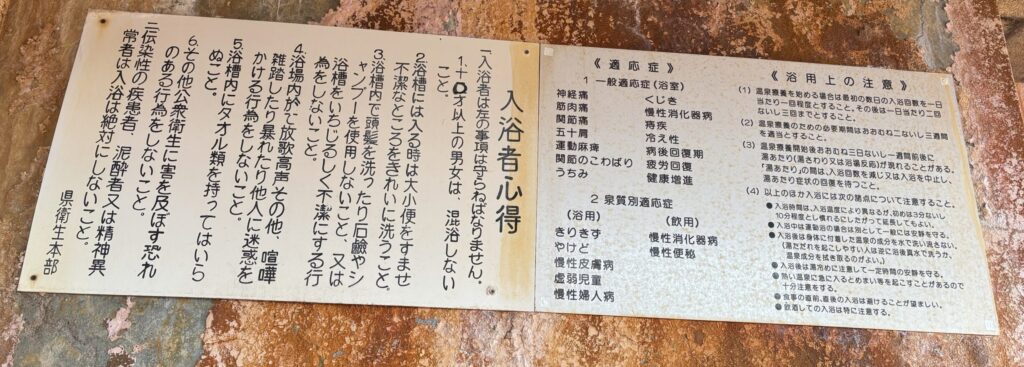 入浴者心得
一、入浴者は左の事項は守らねばなりません。
1.十〇才以上の男女は、混浴しない
こと。
2.浴槽には入る時は大小便をすませ
不潔なところをきれいに洗うこと
3.浴槽内で頭髪を洗ったり石鹸やシ
ャンプーを使用しないこと、又は
浴槽をいちじるしく不潔にする行
為をしないこと。
4.浴場内於て放歌高声その他、喧嘩
雑踏したり暴れたり他人に迷惑を
かける行為をしないこと。
5.浴槽内にタオル類を持ってはいら
ぬこと。
6.その他公衆衛生に害を及ぼす恐れ
のある行為をしないこと。
二、伝染性の疾患者、泥酔者又は精神異
常者は入浴は絶対にしないこと。
県衛生本部
《 適応症 》
1 一般適応症(浴室)
神経痛 くじき
筋肉痛 慢性消化器病
関節痛 痔疾
五十肩 冷え性
運動麻痺 病後回復期
関節のこわばり 疲労回復
うちみ 健康増進
2 泉質別適応症
(浴用) (飲用)
きりきず 慢性消化器病
やけど 慢性便秘
慢性皮膚病
虚弱児童
慢性婦人病
《 浴用上の注意 》
(1) 温泉療養を始める場合は最初の数日の入浴回数を一日
当たり一回程度とすること。その後は一日当たり二回
ないし三回までとすること。
(2) 温泉療養のための必要期間はおおむね二ないし三週間
を適当とすること。
(3) 温泉療養開始後おおむね三日ないし一週間前後に
湯あたり(湯さわり又は浴場反応)が現れることがある。
「湯あたり」の間は、入浴回数を減じ又は入浴を中止し、
湯あたり症状の回復を待つこと。
(4) 以上のほか入浴には次の諸点について注意すること。
●入浴時間は、入浴温度により異なるが、初めは3分ないし
10分程度とし慣れるにしたがって延長してもよい。
●入浴中は運動浴の場合は別として一般には安静を守る。
●入浴後は身体に付着した温泉の成分を水で洗い流さない。
(湯ただれを起こしやすい人は逆に浴後真水で洗うか、
温泉成分を拭き取るのがよい。)
●入浴後は湯冷めに注意して一定時間の安静を守る。
●熱い温泉に急に入るとめまい等を起こすことがあるので
十分注意をする。
●食事の直前、直後の入浴は避けることが望ましい。
●飲酒しての入浴は特に注意する。